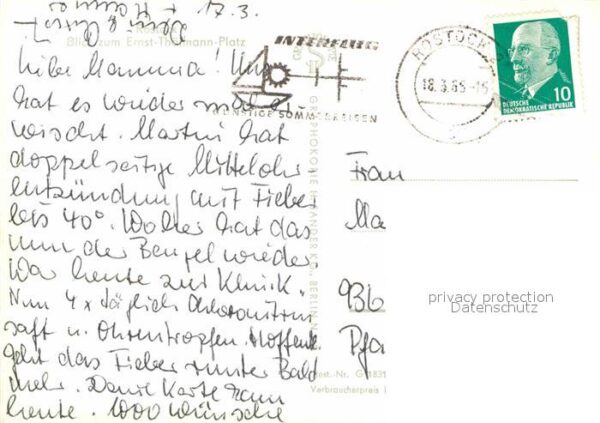 17.3.
Blick zum Ernst-Thälmann-Platz
Liebe Mamma! Uns
hat es wieder mal er-
wischt. Martin hat
doppelseitige Mittelohr
entzündung mit Fieber
bis 40°. Woher hat das
nun der Bengel wieder.
War heute zur Klinik.
Nun 4 x täglich
saft u. Ohrentropfen. Hoffentl.
geht das Fieber runter. Bald
mehr. Deine Karte kam
heute. 1000 Wünsche
INTERFLUG
GÜNSTIGE SOMMERREISEN
ROSTOCK
18.3.65-15
DEUTSCHE
DEMOKRATISCHE REPUBLIK
10
Frau
Ma
936
Pfa
privacy protection
Datenschutz
Best.-Nr. G 1831
Verbraucherpreis